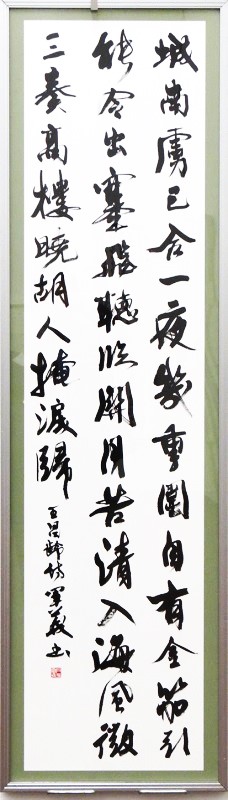 城南虜已合一夜幾重圍自有金笳引
能令出塞飛聽臨關月苦清入海風微
三奏高樓曉胡人掩淚歸
王昌齡詩 軍 书